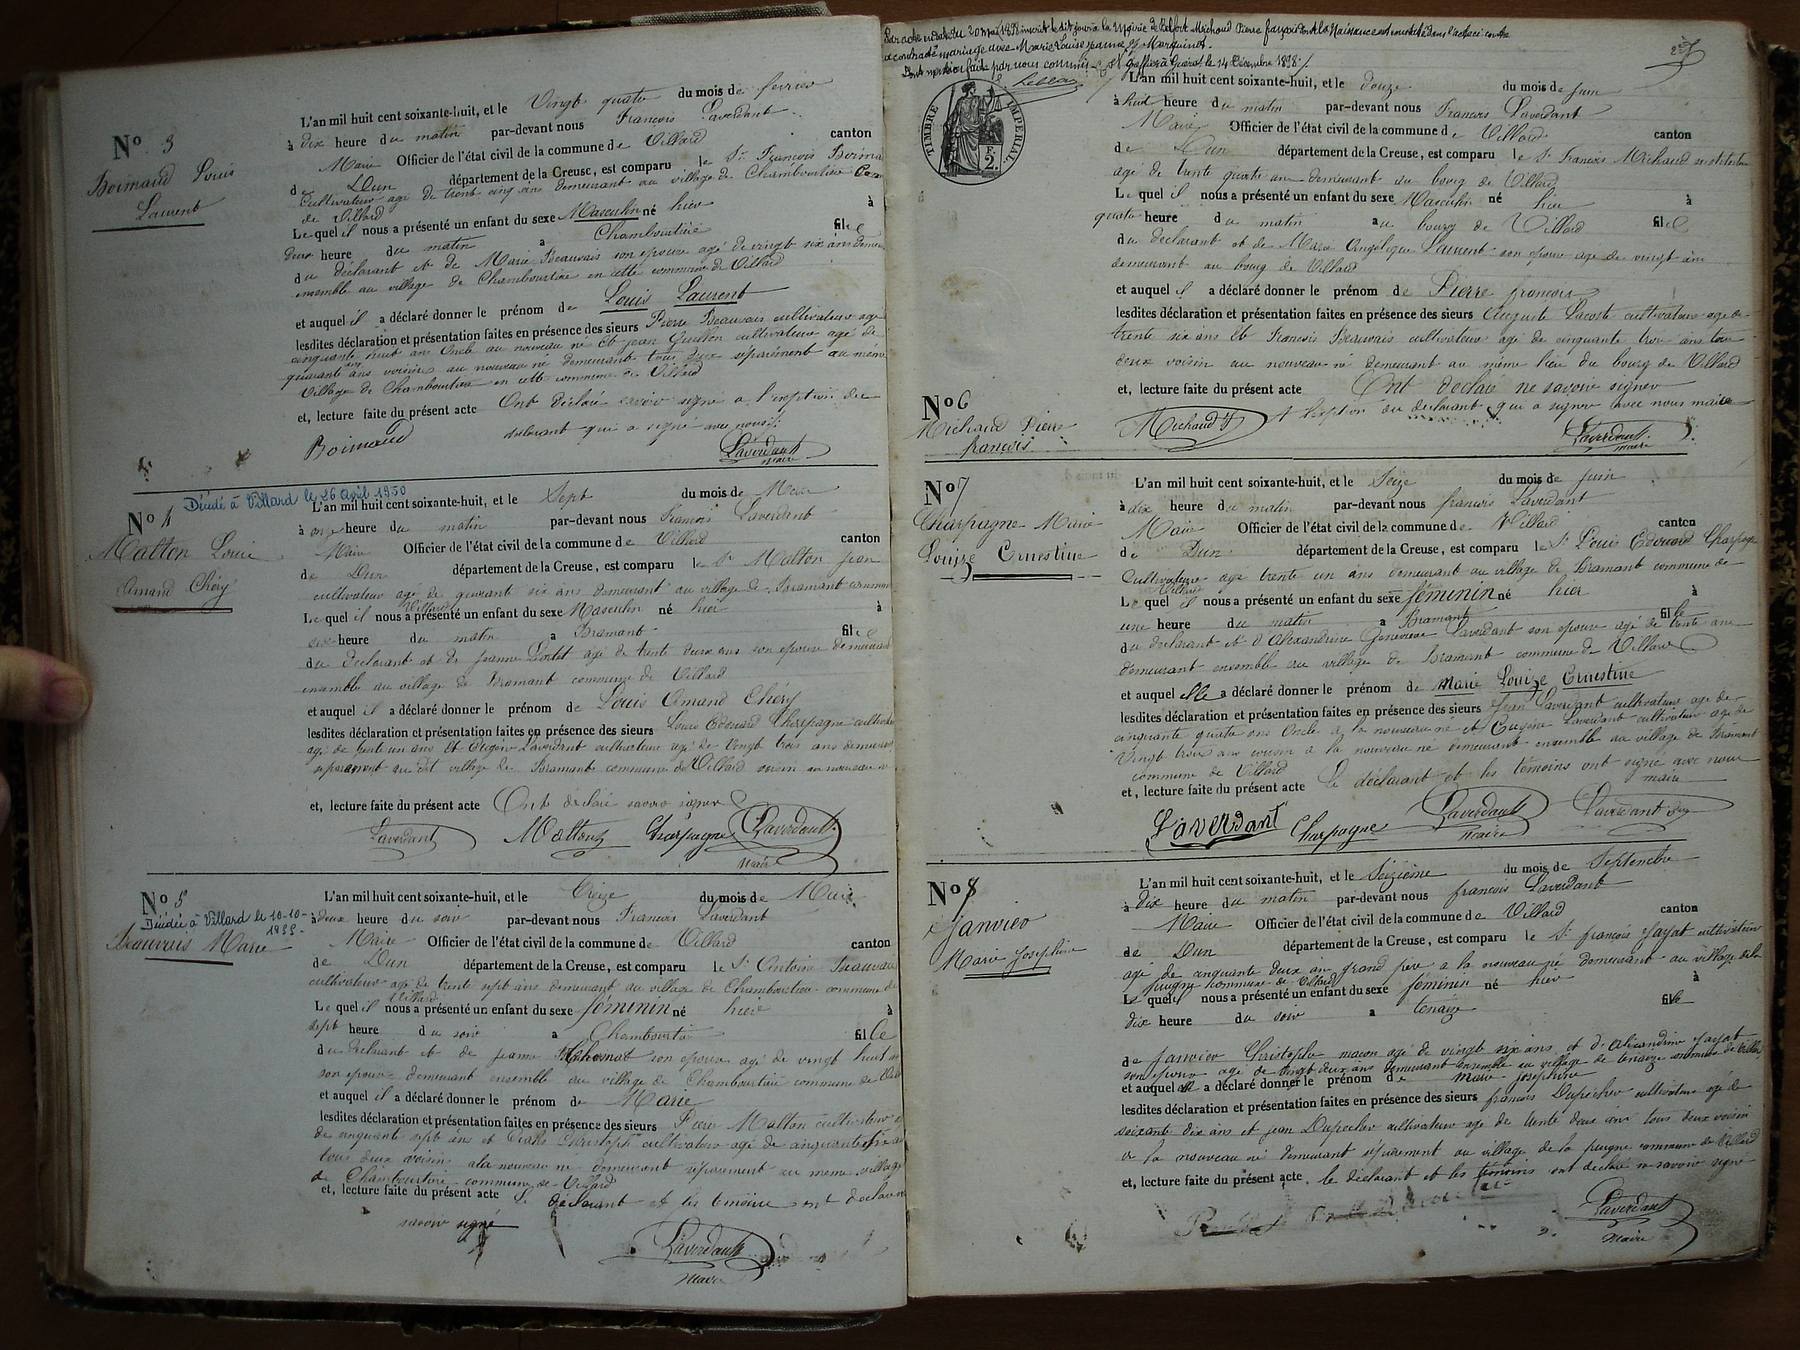 No 3
Boimaud Louis
Laurent
L'an mil huit cent soixante-huit, et le Vingt quatre du mois de fevrier
à dix heure du matin par-devant nous François Laverdant
Maire Officier de l'état civil de la commune de Villard canton
de Dun département de la Creuse, est comparu le Sr François Boimau
cultivateur agé de trente cinq ans demeurant au village de Chamboutière Com
de Villard
Le quel il nous a présenté un enfant du sexe Masculin né hier à
deux heure du matin a Chamboutière fil
du déclarant et de Marie Beauvais son epouse agé de vingt six ans demeu
ensemble au village de Chamboutière en cette commune de Villard
et auquel il a déclaré donner le prénom de Louis Laurent
lesdites déclaration et présentation faites en présence des sieurs Pierre Beauvais cultivateur agé
cinquante huit ans Oncle au nouveau né Et jean Guillon cultivateur agé de
quarante ans voisin au nouveau né demeurant tous deux séparément au même
Village de Chamboutière en cette commune de Villard
et, lecture faite du présent acte Ont déclaré savoir signé a l'exption du
declarant qui a signé avec nous
Boimaud Laverdant
maire
No 4 Décédé à Villard le 26 Avril 1950
Malton Louis
Amand Chéry
L'an mil huit cent soixante-huit, et le Sept du mois de Mars
à onze heure du matin par-devant nous François Laverdant
Maire Officier de l'état civil de la commune de Villard canton
de Dun département de la Creuse, est comparu le Sr Malton jean
cultivateur agé de quarante six ans demeurant au village de Bramant commun
Villard
Le quel il nous a présenté un enfant du sexe Masculin né hier à
six heure du matin a Bramant fil
du declarant et de jeanne agé de trente deux ans son epouse demeurant
ensemble au village de Bramant commune de Villard
et auquel il a déclaré donner le prénom de Louis Amand Chéry
lesdites déclaration et présentation faites en présence des sieurs Louis Edouard Charpagne cultivat
agé de trente un ans Et Eugene Laverdant cultivateur agé de Vingt trois ans demeurant
séparément au dit village de Bramant commune de Villard voisin au nouveau n
et, lecture faite du présent acte Ont déclaré savoir signer
Laverdant Malton Charpagne Laverdant
maire
No 5
Décédée à Villard le 10-10-
Beauvais Marie
L'an mil huit cent soixante-huit, et le Treize du mois de Mars
à deux heure du soir par-devant nous François Laverdant
Maire Officier de l'état civil de la commune de Villard canton
de Dun département de la Creuse, est comparu le Sr Antoine Beauvais
cultivateur agé de trente sept ans demeurant au village de Chamboutière commune de
Villard
Le quel il nous a présenté un enfant du sexe féminin né hier à
sept heure du soir a Chamboutière fille
du déclarant et de jeanne son epouse agé de vingt huit an
son epouse demeurant ensemble au village de Chamboutière commune de Vill
et auquel il a déclaré donner le prénom de Marie
lesdites déclaration et présentation faites en présence des sieurs Pierre Malton cultivateur
de cinquante sept ans et Christophe cultivateur agé de cinquante
tous deux voisins a la nouveau né demeurant séparément au meme village
de Chamboutière commune de Villard
et, lecture faite du présent acte Le déclarant et les temoins ont declar
savoir signé
Laverdant
Maire
Par acte en date du 20 Mai 1898 inscrit le dit jour à la Mairie de Belfort Michaud Pierre françois dont la Naissance est constatée dans l'acte ci-contre
a contracté mariage avec Marie Louise Jeanne Marquinot.
Dont mention faite par nous commis-greffier à Guéret le 14 Décembre 1898
TIMBRE IMPERIAL
F.
2.
No 6
Michaud Pierre
françois
L'an mil huit cent soixante-huit, et le douze du mois de juin
à huit heure du matin par-devant nous François Laverdant
Maire Officier de l'état civil de la commune de Villard canton
de Dun département de la Creuse, est comparu le Sr François Michaud instituteur
agé de trente quatre ans demeurant au bourg de Villard
Le quel il nous a présenté un enfant du sexe Masculin né hier à
quatre heure du matin au bourg de Villard fil
du declarant et de Marie Angelique Laurent son epouse age de vingt ans
demeurant au bourg de Villard
et auquel il a déclaré donner le prénom de Pierre françois
lesdites déclaration et présentation faites en présence des sieurs Auguste Lacoste cultivateur age de
trente six ans Et François Beauvais cultivateur agé de cinquante trois ans tous
deux voisin au nouveau né demeurant au même lieu du bourg de Villard
et, lecture faite du présent acte Ont declaré ne savoir signer
a l'exption du declarant qui a signer avec nous maire
Michaud Laverdant
maire
No 7
Charpagne Marie
Louize Ernestine
L'an mil huit cent soixante-huit, et le Seize du mois de juin
à dix heure du matin par-devant nous françois Laverdant
Maire Officier de l'état civil de la commune de Villard canton
de Dun département de la Creuse, est comparu le Sr Louis Edouard Charpagne
Cultivateur agé trente un ans demeurant au village de Bramant commune de
Villard
Le quel il nous a présenté un enfant du sexe féminin né hier à
une heure du matin a Bramant fille
du déclarant et d'Alexandrine Genevieve Laverdant son epouse agé de trente ans
demeurant ensemble au village de Bramant commune de Villard
et auquel elle a déclaré donner le prénom de Marie Louize Ernestine
lesdites déclaration et présentation faites en présence des sieurs Jean Laverdant cultivateur age de
cinquante quatre ans Oncle a la nouveau né et Eugène Laverdant cultivateur agé de
Vingt trois ans cousin a la nouveau né demeurant ensemble au village de Bramant
commune de Villard
et, lecture faite du présent acte Le déclarant et les témoins ont signé avec nous
maire
Laverdant Charpagne Laverdant Laverdant
maire
No 8
Janvier
Marie Josephine
L'an mil huit cent soixante-huit, et le Seizième du mois de Septembre
à dix heure du matin par-devant nous françois Laverdant
Maire Officier de l'état civil de la commune de Villard canton
de Dun département de la Creuse, est comparu le Sr françois Jayat cultivateur
agé de cinquante deux ans grand père a la nouveau né demeurant au village de la
commune de Villard
Le quel nous a présenté un enfant du sexe féminin né hier à
dix heure du soir a tenaize fille
de Janvier Christophe macon agé de vingt six ans et d'Alexandrine Jayat
son epouse agé de vingt deux ans demeurant ensemble au village de tenaize commune de Villard
et auquel elle a déclaré donner le prénom de Marie josephine
lesdites déclaration et présentation faites en présence des sieurs françois Duposher cultivateur agé de
soixante dix ans et jean Duposher cultivateur age de trente deux ans tous deux voisin
a la nouveau né demeurant séparément au village de la commune de Villard
et, lecture faite du présent acte le déclarant et les temoins ont déclaré ne savoir signé
Laverdant
Maire